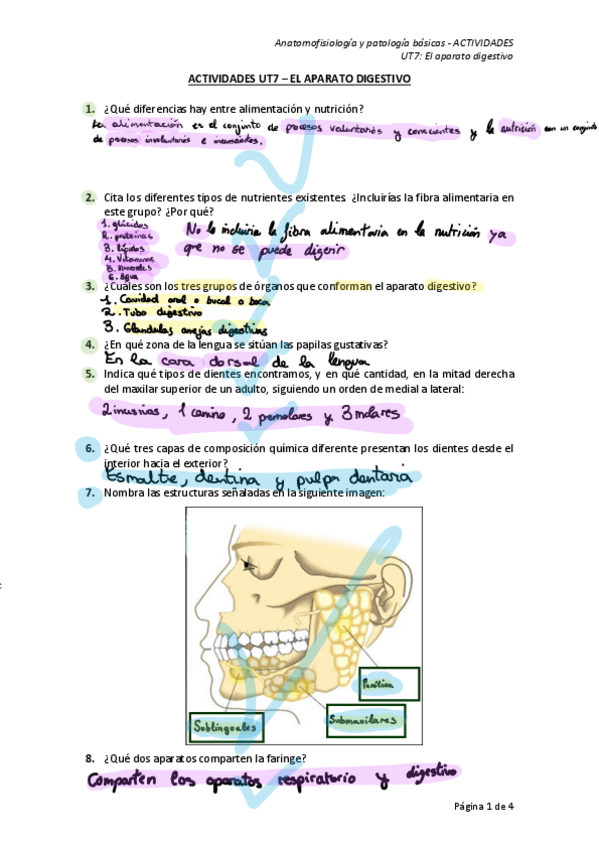 Anatomofisiología y patología básicas - ACTIVIDADES
UT7: El aparato digestivo
ACTIVIDADES UT7 – EL APARATO DIGESTIVO
1. ¿Qué diferencias hay entre alimentación y nutrición?
La alimentación es el conjunto de procesos voluntarios y conscientes y la nutrición son un conjunto
de procesos involuntarios e inconscientes.
2. Cita los diferentes tipos de nutrientes existentes. ¿Incluirías la fibra alimentaria en
este grupo? ¿Por qué?
1. glúcidos
2. proteínas
3. lípidos
4. Vitaminas
5. minerales
6. Agua
No lo incluiria la fibra alimentaria en la nutrición ya
que no se puede digerir
3. ¿Cuáles son los tres grupos de órganos que conforman el aparato digestivo?
1. Cavidad oral o bucal o boca
2. Tubo digestivo
3. Glandulas anejas digestivas
4. ¿En qué zona de la lengua se sitúan las papilas gustativas?
En la cara dorsal de la lengua
5. Indica qué tipos de dientes encontramos, y en qué cantidad, en la mitad derecha
del maxilar superior de un adulto, siguiendo un orden de medial a lateral:
2 incisivos, 1 canino, 2 premolares y 3 molares
6. ¿Qué tres capas de composición química diferente presentan los dientes desde el
interior hacia el exterior?
Esmalte, dentina y pulpa dentaria
7. Nombra las estructuras señaladas en la siguiente imagen:
Parótida
Submaxilares
Sublinguales
8. ¿Qué dos aparatos comparten la faringe?
Comparten los aparatos respiratorio y digestivo
Página 1 de 4